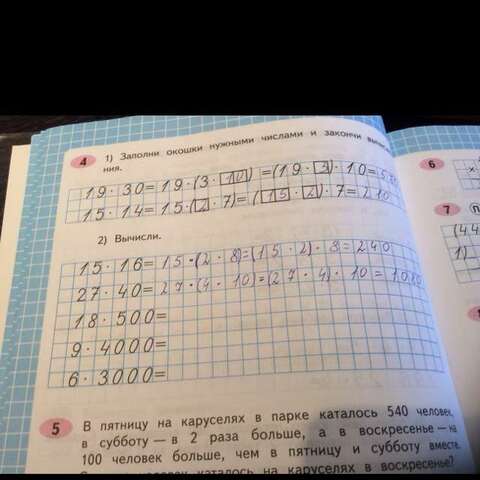 4 1) Заполни окошки нужными числами и закончи
ния.
19 · 30 = 19 · (3 · 10) = (19 · 3) · 10 =
15 · 14 = 15 · (2 · 7) = (15 · 2) · 7 = 210
2) Вычисли.
15 · 16 = 15 · (2 · 8) = (15 · 2) · 8 = 240
27 · 40 = 27 · (4 · 10) = (27 · 4) · 10 = 1080
18 · 500 =
9 · 4000 =
6 · 3000 =
5 В пятницу на каруселях в парке каталось 540 человек,
в субботу — в 2 раза больше, а в воскресенье — на
100 человек больше, чем в пятницу и субботу вместе.
каталось на каруселях в воскресенье?
6
×
7
(44
1)